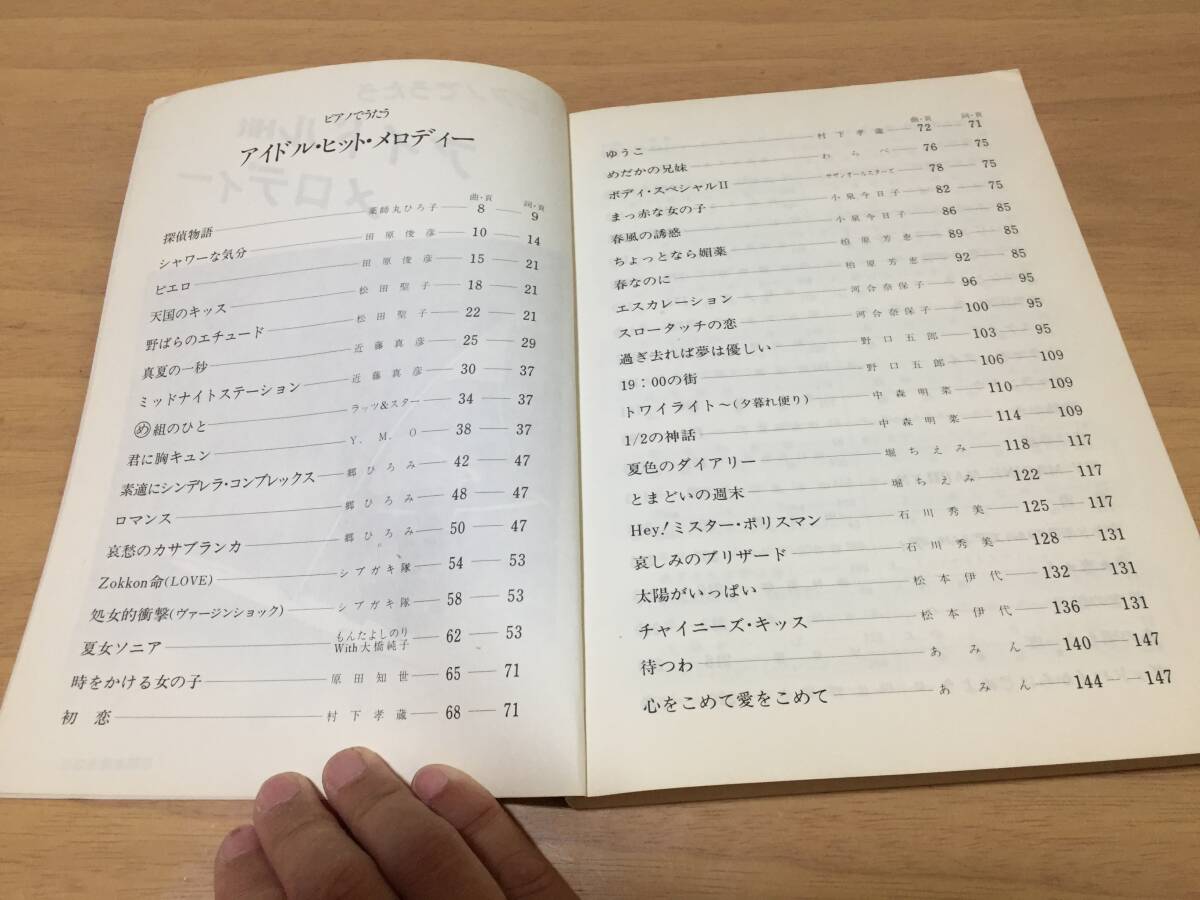 ピアノでうたう
アイドル・ヒット・メロディー
曲・頁 詞・頁
探偵物語 薬師丸ひろ子 8 9
シャワーな気分 田原俊彦 10 14
ピエロ 田原俊彦 15 21
天国のキッス 松田聖子 18 21
野ばらのエチュード 松田聖子 22 21
真夏の一秒 近藤真彦 25 29
ミッドナイトステーション 近藤真彦 30 37
め組のひと ラッツ&スター 34 37
君に胸キュン Y.M.O 38 37
素適にシンデレラ・コンプレックス 郷ひろみ 42 47
ロマンス 郷ひろみ 48 47
哀愁のカサブランカ 郷ひろみ 50 47
Zokkon命(LOVE) シブガキ隊 54 53
処女的衝撃(ヴァージンショック) シブガキ隊 58 53
夏女ソニア もんたよしのり With大橋純子 62 53
時をかける女の子 原田知世 65 71
初恋 村下孝蔵 68 71
曲・頁 詞・頁
ゆうこ 村下孝蔵 72 71
めだかの兄妹 わらべ 76 75
ボディ・スペシャルII サザンオールスターズ 78 75
まっ赤な女の子 小泉今日子 82 75
春風の誘惑 小泉今日子 86 85
ちょっとなら媚薬 柏原芳恵 89 85
春なのに 柏原芳恵 92 85
エスカレーション 河合奈保子 96 95
スロータッチの恋 河合奈保子 100 95
過ぎ去れば夢は優しい 野口五郎 103 95
19:00の街 野口五郎 106 109
トワイライト〜(夕暮れ便り) 中森明菜 110 109
1/2の神話 中森明菜 114 109
夏色のダイアリー 堀ちえみ 118 117
とまどいの週末 堀ちえみ 122 117
Hey!ミスター・ポリスマン 石川秀美 125 117
哀しみのブリザード 石川秀美 128 131
太陽がいっぱい 松本伊代 132 131
チャイニーズ・キッス 松本伊代 136 131
待つわ あみん 140 147
心をこめて愛をこめて あみん 144 147